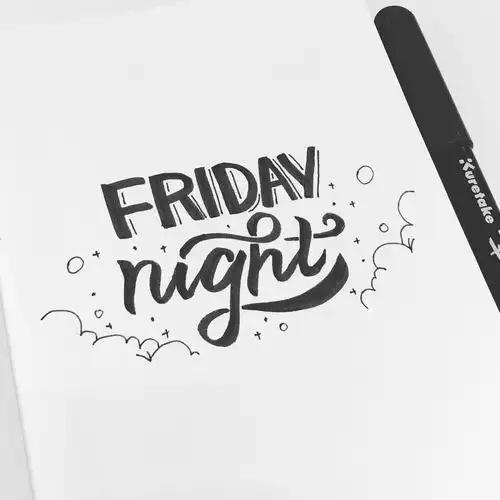 FRIDAY
night
Kuretake